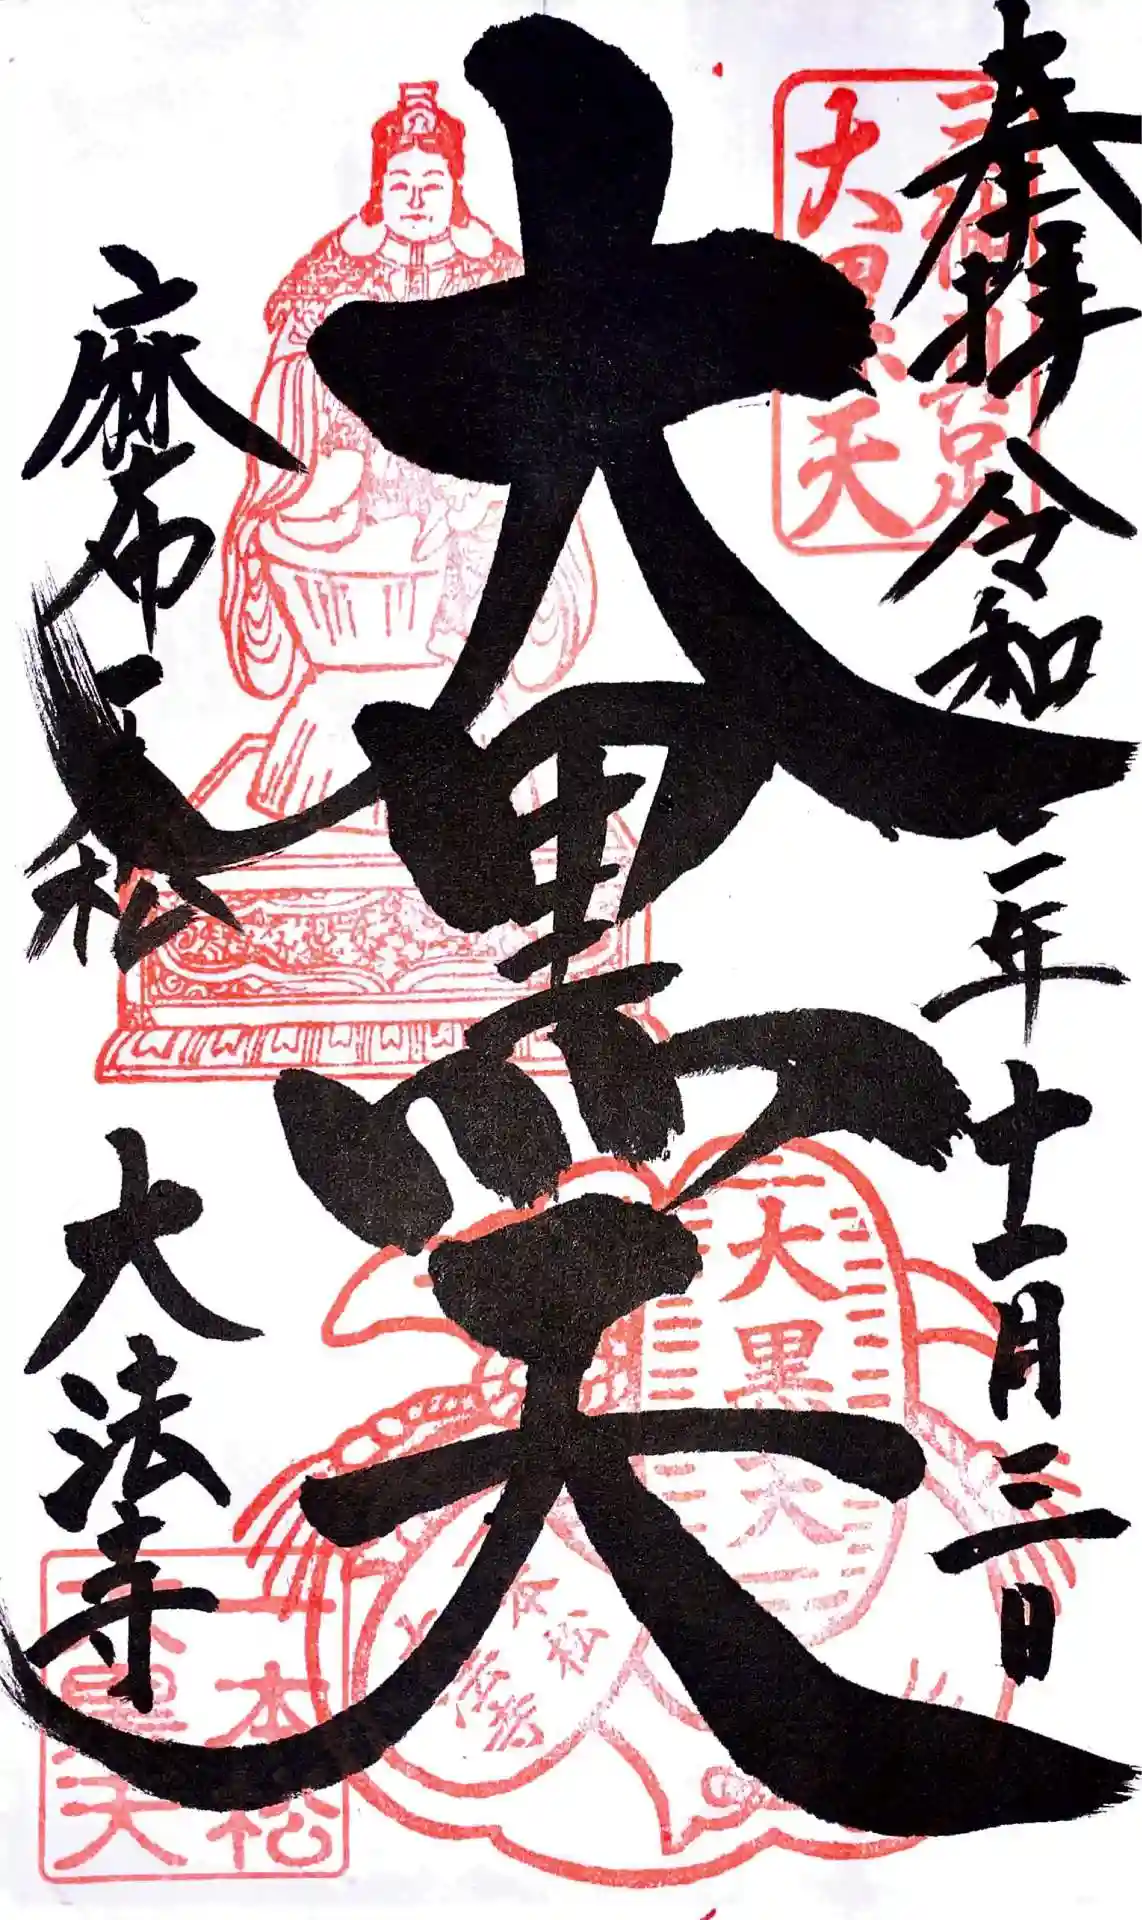 奉拝 令和二年十一月三日
三神具足
大黒天
大黒天
大黒天
麻布一本松 大法寺
一本松
大黒天